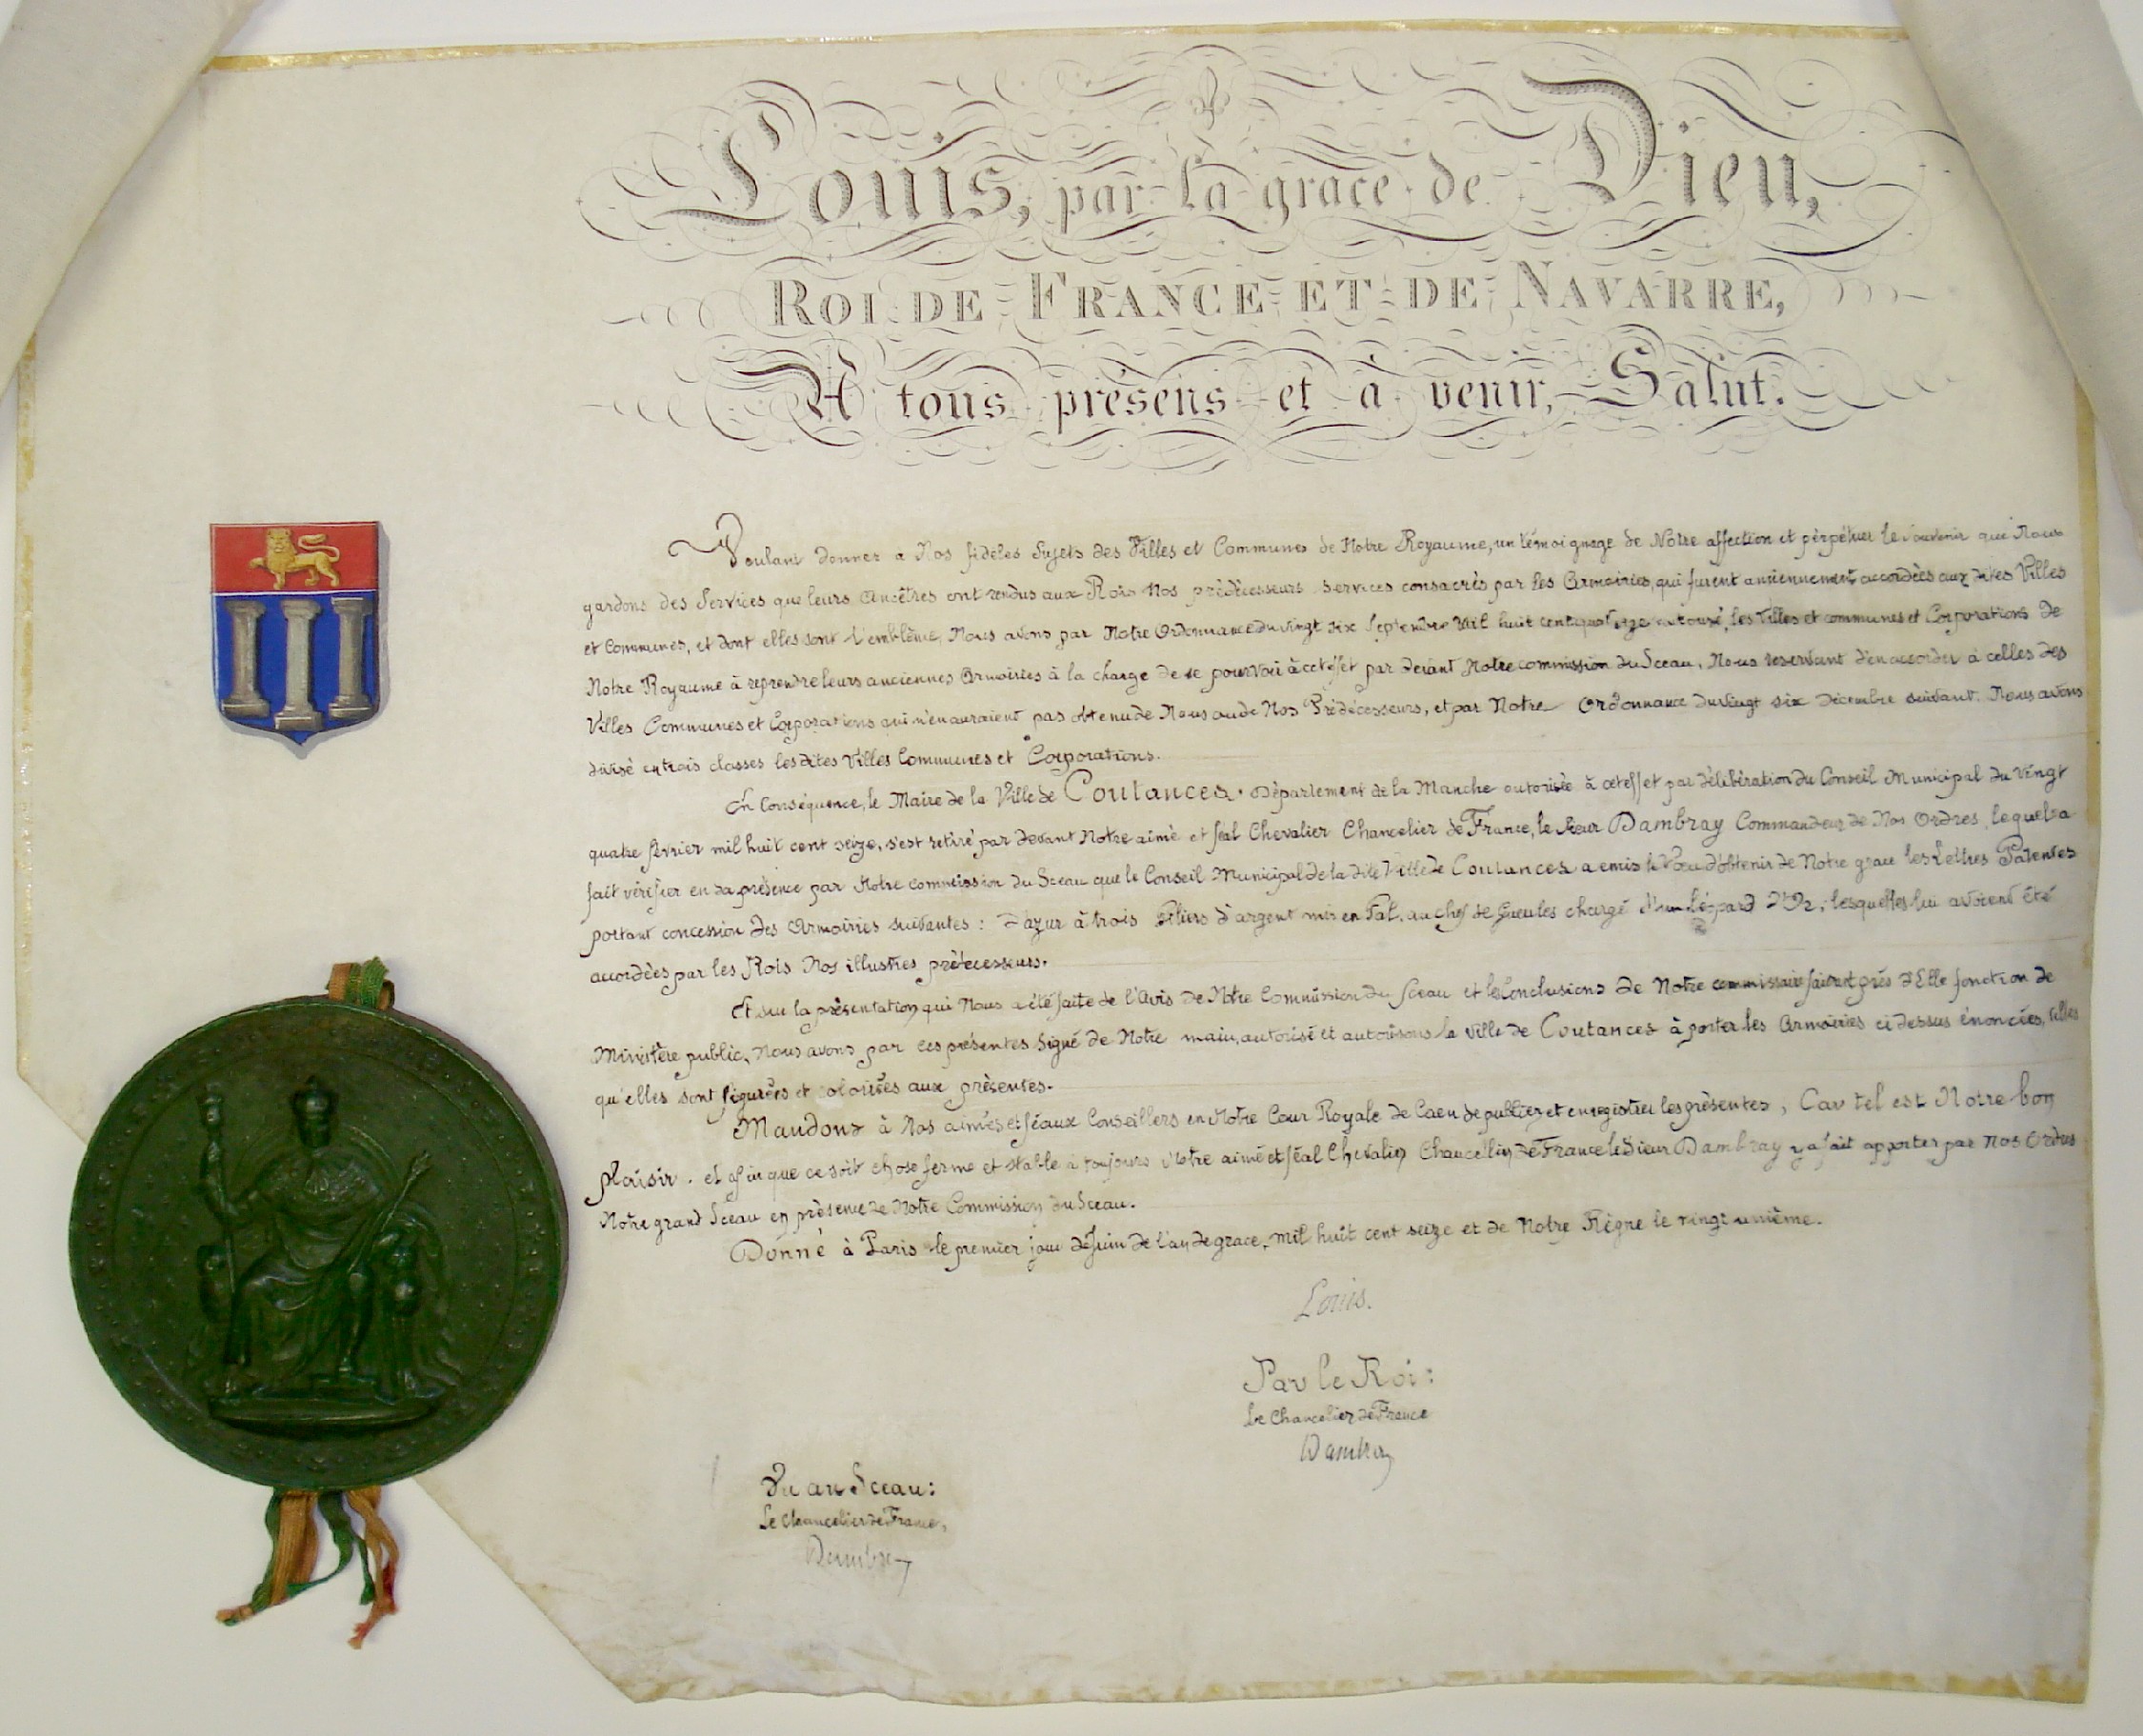 Louis, par la grace de Dieu,
ROI DE FRANCE ET DE NAVARRE,
A tous présens et à venir, Salut.
Voulant donner à Nos fidèles Sujets des Villes et Communes de Notre Royaume, un témoignage de Notre affection et perpétuer le souvenir que Nous
gardons des Services que leurs Ancêtres ont rendus aux Rois Nos prédécesseurs services consacrés par les Armoiries, qui furent anciennement accordées aux dites Villes
et Communes, et dont elles sont l'emblême, Nous avons par Notre Ordonnance du vingt six Septembre Mil huit cent quatorze autorisé, les Villes et communes et Corporations de
Notre Royaume à reprendre leurs anciennes Armoiries à la charge de se pourvoir à cet effet par devant Notre commission du Sceau, Nous reservant d'en accorder à celles des
Villes Communes et Corporations qui n'en auraient pas obtenu de Nous ou de Nos Prédécesseurs, et par Notre Ordonnance du vingt six Décembre suivant. Nous avons
divisé en trois classes les dites Villes Communes et Corporations.
En Conséquence, le Maire de la Ville de Coutances. Département de la Manche autorisée à cet effet par délibération du Conseil Municipal du Vingt
quatre février mil huit cent seize, s'est retiré par devant Notre aimé et féal Chevalier Chancelier de France, le Sieur Dambray Commandeur de Nos Ordres, lequel a
fait vérifier en sa présence par Notre commission du Sceau que le Conseil Municipal de la dite Ville de Coutances a emis le Vœu d'obtenir de Notre grace les Lettres Patentes
portant concession des Armoiries suivantes : D'azur à trois Piliers d'argent mis en Pal, au chef de Gueules chargé d'un Léopard d'Or, lesquelles lui avoient été
accordées par les Rois Nos illustres prédécesseurs.
Et sur la présentation qui Nous a été faite de l'Avis de Notre Commission du Sceau et les Conclusions de Notre commissaire faisant près d'Elle fonction de
Ministère public, Nous avons par ces présentes Signé de Notre main, autorisé et autorisons la ville de Coutances à porter les Armoiries ci dessus énoncées, telles
qu'elles sont figurées et coloriées aux présentes.
Mandons à Nos aimés et féaux Conseillers en Notre Cour Royale de Caen de publier et enregistrer les présentes, Car tel est Notre bon
plaisir. et afin que ce soit chose ferme et stable à toujours Notre aimé et féal Chevalier Chancelier de France le Sieur Dambray y a fait apporter par Nos Ordres
Notre grand Sceau en présence de Notre Commission du Sceau.
Donné à Paris le premier jour de Juin de l'an de grace, mil huit cent seize et de Notre Règne le vingt unième.
Louis.
Par le Roi :
Le Chancelier de France
Dambray
Vu au Sceau :
Le Chancelier de France,
Dambray